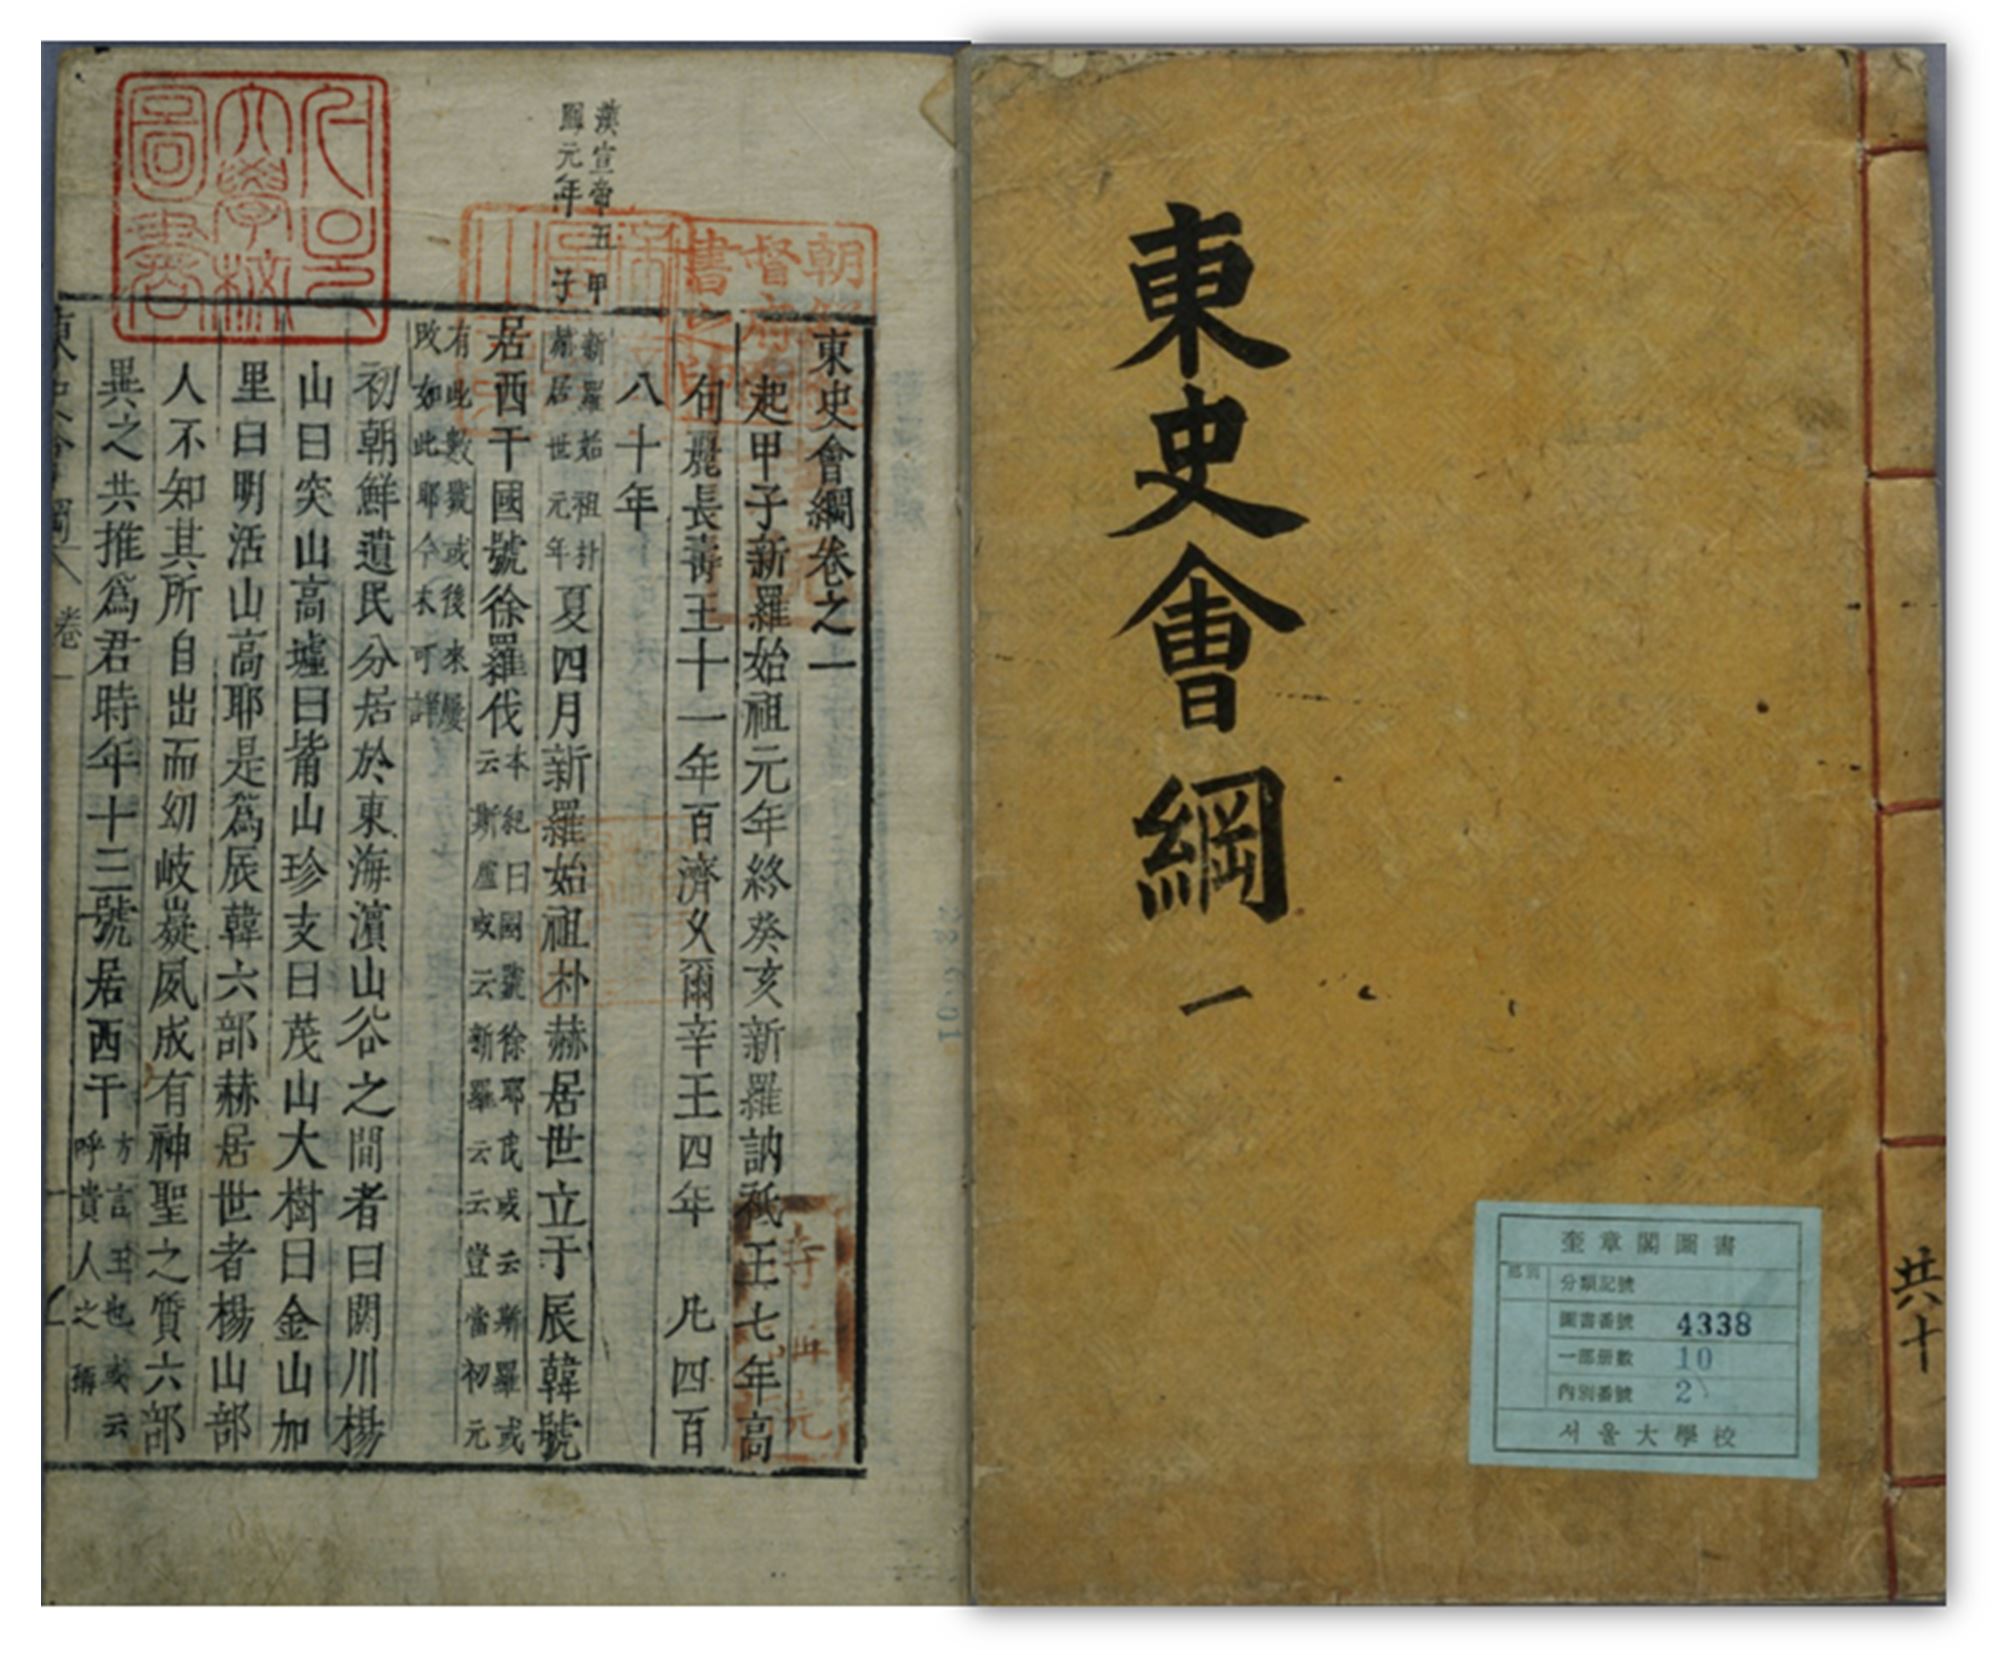 東史會綱
一
共十
奎章閣圖書
分類記號
圖書番號 4338
一部冊數 10
內別番號 2
서울大學校
漢宣帝五
鳳元年
甲
子
東史會綱卷之一
起甲子新羅始祖元年終癸亥新羅訥祗王七年高
句麗長壽王十一年百濟久爾辛王四年 凡四百
八十年
新羅始祖朴
赫居世元年
夏四月新羅始祖朴赫居世立于辰韓號
居西干國號徐羅伐
本紀曰國號徐耶伐或云斯羅或
云斯盧或云新羅云云豈當初元
有此數號或後來屢
改如此耶今未可詳
初朝鮮遺民分居於東海濱山谷之間者曰閼川楊
山曰突山高墟曰觜山珍支曰茂山大樹曰金山加
里曰明活山高耶是爲辰韓六部赫居世者楊山部
人不知其所自出而幼岐嶷夙成有神聖之質六部
異之共推爲君時年十三號居西干
方言王也或云
呼貴人之稱
東史會綱 卷一
서울
大學校
圖書